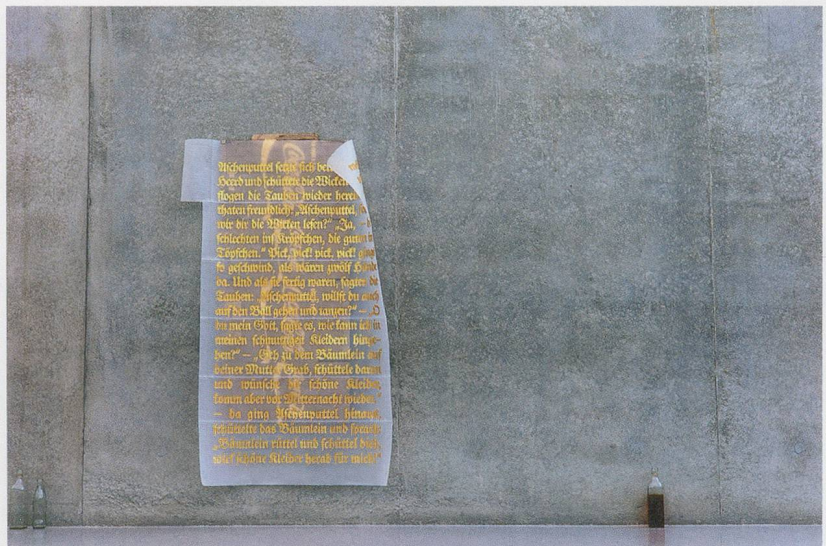 Aschenputtel setzte sich
Heerd und schüttete die Wicken
flogen die Tauben wieder herein
thaten freundlich: „Aschenputtel,
wir dir die Wicken lesen?“ „Ja, –
schlechten ins Kröpfchen, die guten
Töpfchen.“ Pick, pick! pick, pick! ging
so geschwind, als wären zwölf
da. Und als sie fertig waren, sagten die
Tauben: „Aschenputtel, willst du auch
auf den Ball gehen und tanzen?“ – „O
du mein Gott, sagte es, wie kann ich in
meinen schmutzigen Kleidern hinge-
hen?“ – „Geh zu dem Bäumlein auf
deiner Mutter Grab, schüttele daran
und wünsche dir schöne Kleider,
komm aber vor Mitternacht wieder.“
– da ging Aschenputtel hinaus,
schüttelte das Bäumlein und sprach:
„Bäumlein rüttel und schüttel dich,
wirf schöne Kleider herab für mich!“